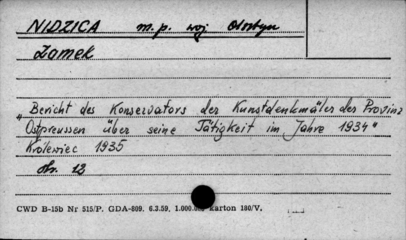 NIDZICA m.p. woj Olsztyn
Zamek
"Bericht des Konservators der Kunstdenkmäler der Provinz
Ostpreussen über seine Tätigkeit im Jahre 1934"
Królewiec 1935
str. 13
CWD B-15b Nr 515/P. GDA-809. 6.3.59. 1.000.000 karton 180/V.